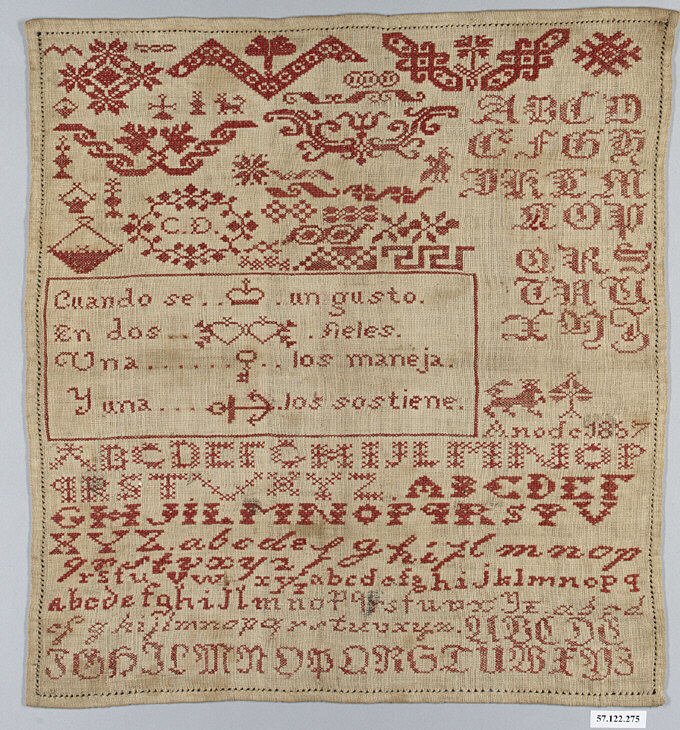 A B C D
E F G H
I K L M
N O P
C.D.
Q R S
T V U
X Y Z
Cuando se.. .un gusto.
En dos.. .fieles.
Una...... ..los maneja.
Y una.... .los sostiene.
Ano de 1857
A B C D E F G H I J L M N O P
Q R S T V X Y Z A B C D E F
G H I J L M N O P Q R S T V
X Y Z a b c d e f g h i j l m n o p
q r s t v x y z
r s t u v w x y z a b c d e f g h i j k l m n o p q
a b c d e f g h i j l m n o p q r s t u v x y z a b c d
e f g h i j l m n o p q r s t u v x y z. A B C D E
F G H I L M N O P Q R S T U W X Y Z
57.122.275